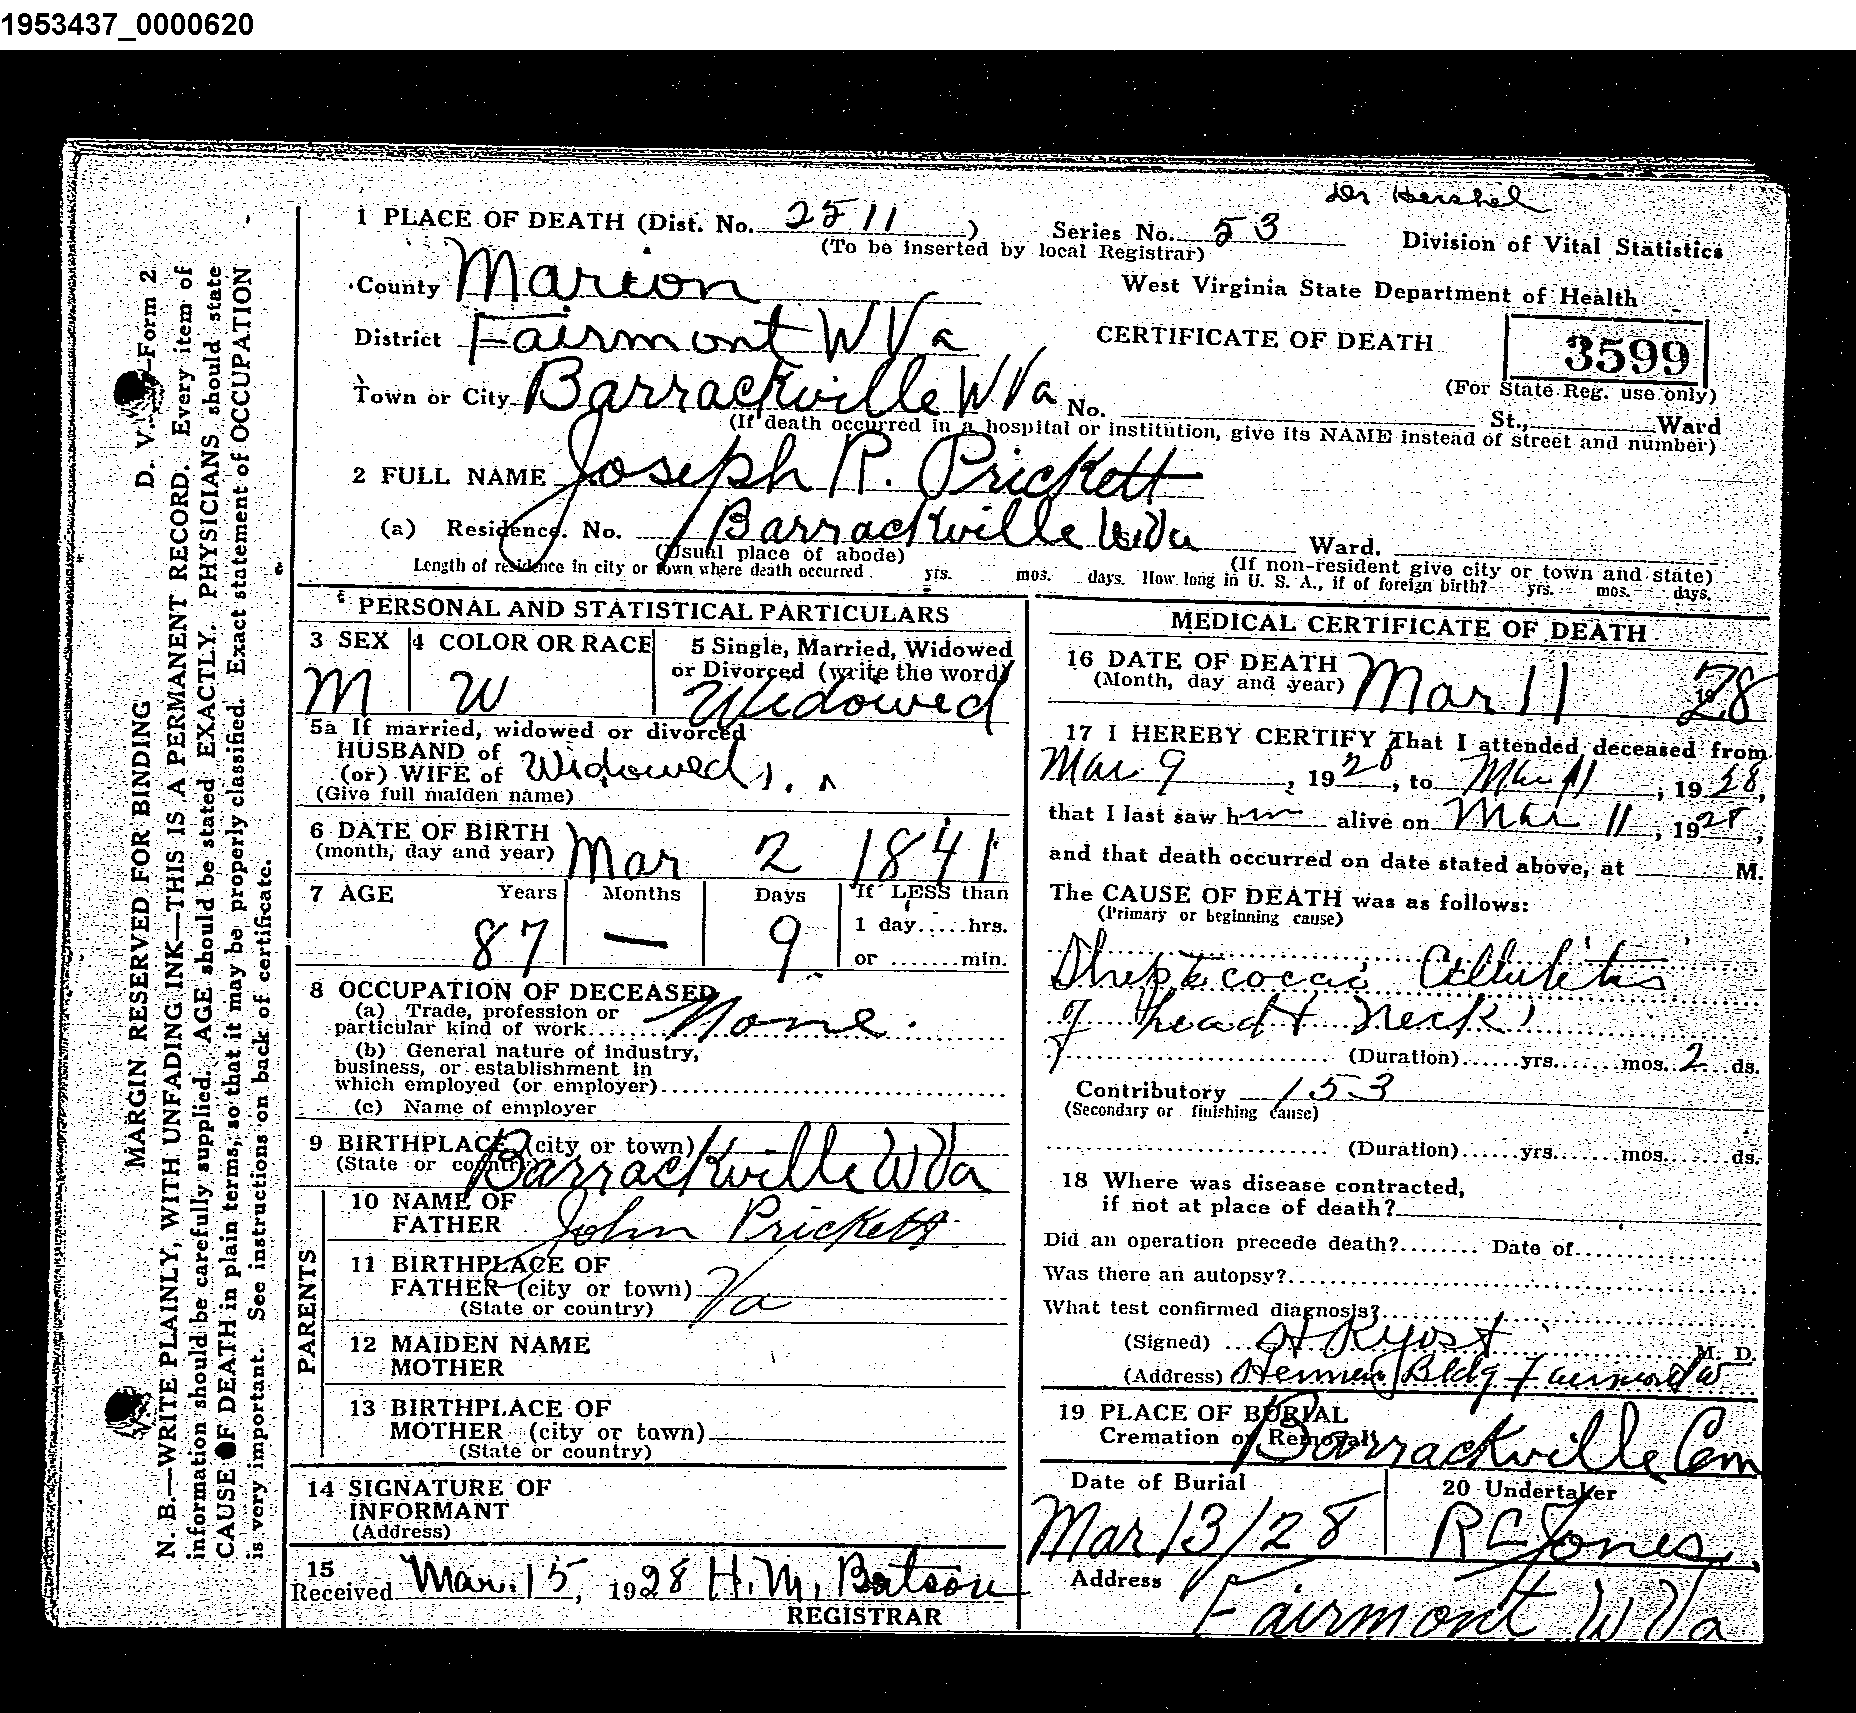 1953437_0000620
Dr Hershel
1 PLACE OF DEATH (Dist. No. 2511 ) Series No. 53
(To be inserted by local Registrar)
Division of Vital Statistics
County Marion
West Virginia State Department of Health
District Fairmont W Va
CERTIFICATE OF DEATH
3599
(For State Reg. use only)
Town or City Barrackville W Va No. St., Ward
(If death occurred in a hospital or institution, give its NAME instead of street and number)
2 FULL NAME Joseph R. Prickett
(a) Residence. No. Barrackville W Va Ward.
(Usual place of abode) (If non-resident give city or town and state)
Length of residence in city or town where death occurred yrs. mos. days. How long in U. S. A., if of foreign birth? yrs. mos. days.
PERSONAL AND STATISTICAL PARTICULARS
3 SEX M
4 COLOR OR RACE W
5 Single, Married, Widowed
or Divorced (write the word)
Widowed
5a If married, widowed or divorced
HUSBAND of
(or) WIFE of Widowed
(Give full maiden name)
6 DATE OF BIRTH
(month, day and year) Mar 2 1841
7 AGE Years Months Days If LESS than
87 — 9
1 day.....hrs.
or .......min.
8 OCCUPATION OF DECEASED
(a) Trade, profession or
particular kind of work None.
(b) General nature of industry,
business, or establishment in
which employed (or employer)
(c) Name of employer
9 BIRTHPLACE (city or town)
(State or country) Barrackville W Va
PARENTS
10 NAME OF
FATHER John Prickett
11 BIRTHPLACE OF
FATHER (city or town) Va
(State or country)
12 MAIDEN NAME
MOTHER
13 BIRTHPLACE OF
MOTHER (city or town)
(State or country)
14 SIGNATURE OF
INFORMANT
(Address)
15
Received Mar. 15, 1928 H. M. Batson
REGISTRAR
MEDICAL CERTIFICATE OF DEATH
16 DATE OF DEATH
(Month, day and year) Mar 11 28
17 I HEREBY CERTIFY That I attended deceased from
Mar 9, 1928, to Mar 11, 1928,
that I last saw him alive on Mar 11, 1928,
and that death occurred on date stated above, at M.
The CAUSE OF DEATH was as follows:
(Primary or beginning cause)
Streptococcic Cellulitis
of head & neck
(Duration)......yrs.......mos. 2 ds.
Contributory 153
(Secondary or finishing cause)
(Duration)......yrs.......mos.......ds.
18 Where was disease contracted,
if not at place of death?
Did an operation precede death?........ Date of
Was there an autopsy?
What test confirmed diagnosis?
(Signed) H R Yost M. D.
(Address) Bldg Fairmont W
19 PLACE OF BURIAL
Cremation or Removal Barrackville Cem
Date of Burial
Mar 13/28
20 Undertaker
R C Jones,
Address
Fairmont W Va
D. V. S.—Form 2
MARGIN RESERVED FOR BINDING
N. B.—WRITE PLAINLY, WITH UNFADING INK—THIS IS A PERMANENT RECORD. Every item of
information should be carefully supplied. AGE should be stated EXACTLY. PHYSICIANS should state
CAUSE OF DEATH in plain terms, so that it may be properly classified. Exact statement of OCCUPATION
is very important. See instructions on back of certificate.